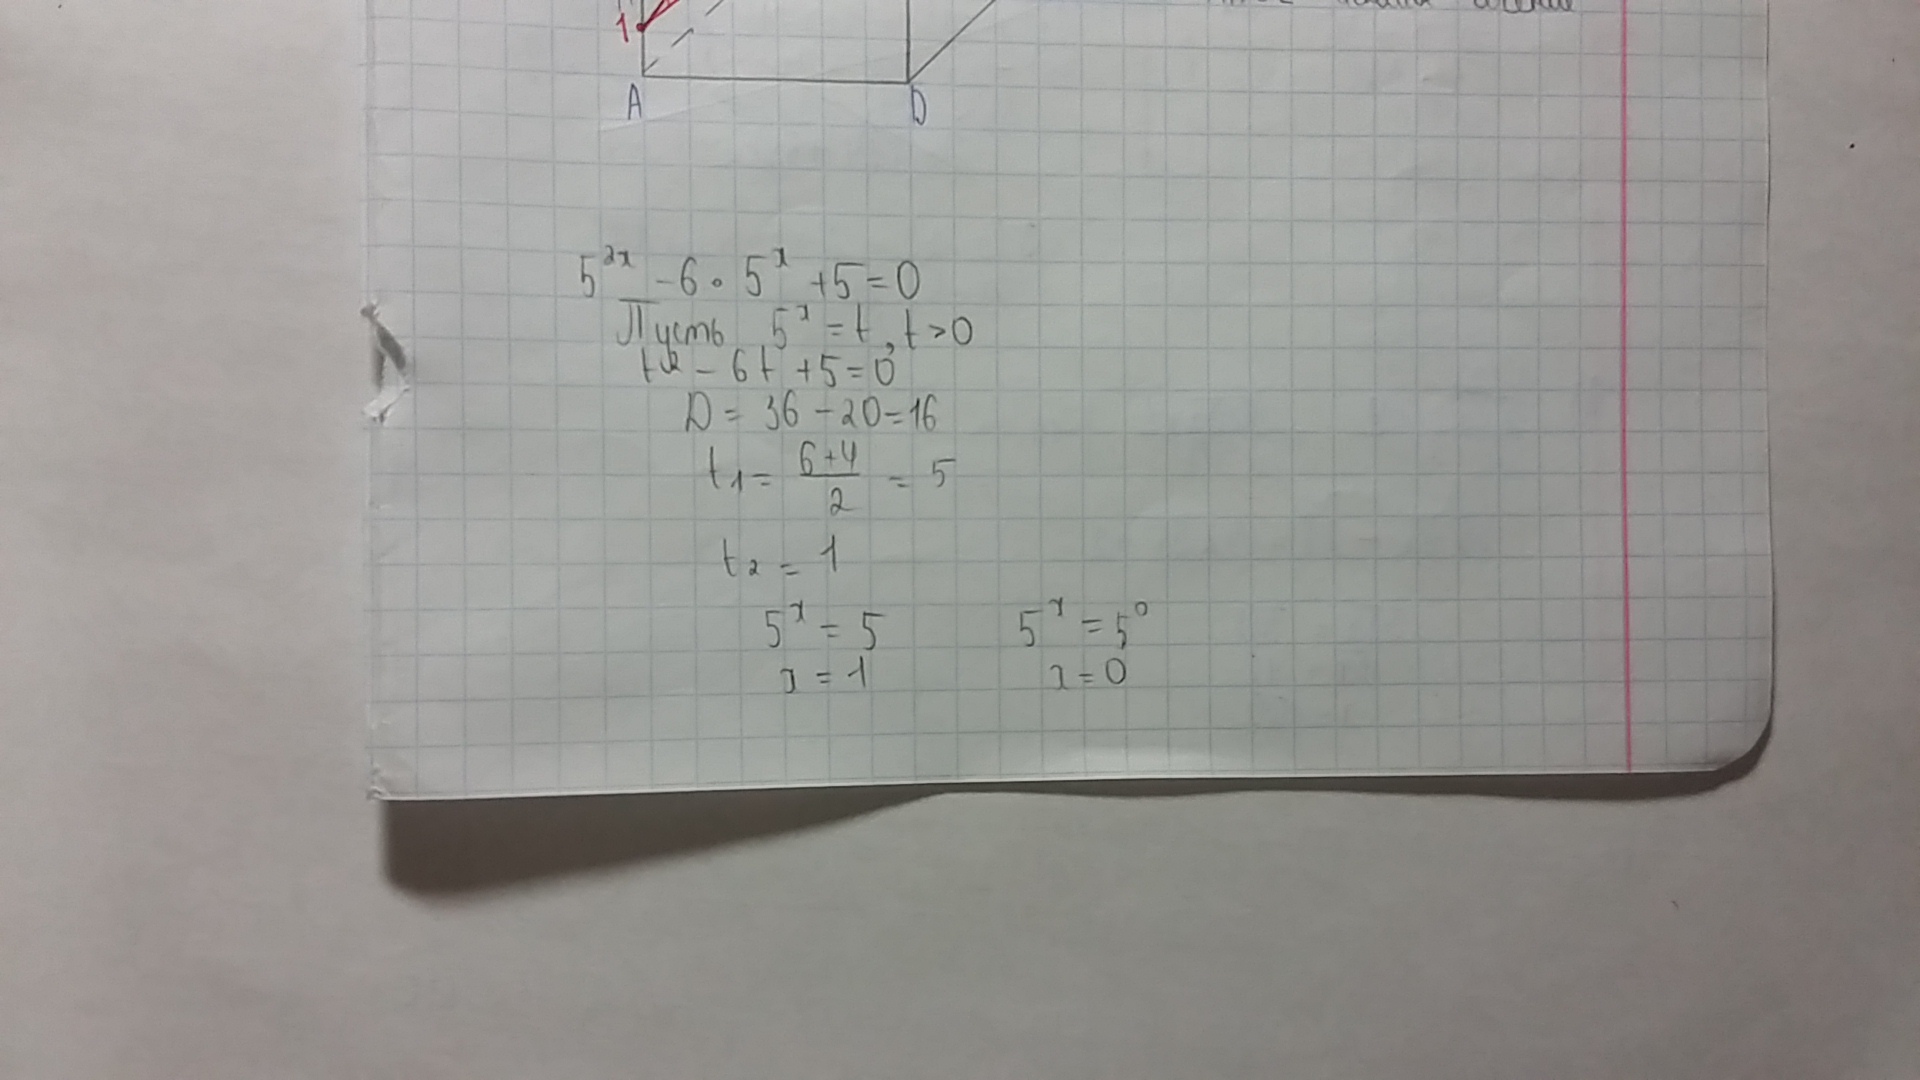 1
A D
5^{2x} - 6 · 5^x + 5 = 0
Пусть 5^x = t, t > 0
t^2 - 6t + 5 = 0
D = 36 - 20 = 16
t_1 = \frac{6+4}{2} = 5
t_2 = 1
5^x = 5 5^x = 5^0
x = 1 x = 0